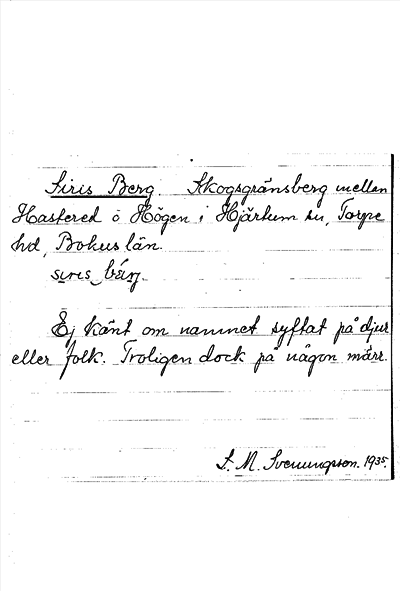 Siris Berg. Skogsgränsberg mellan
Hastered o Högen i Hjärtum sn, Torpe
hd, Bohus län.
Ej känt om namnet syftat på djur
eller folk. Troligen dock på någon märr.
S. M. Svenungson. 1935.